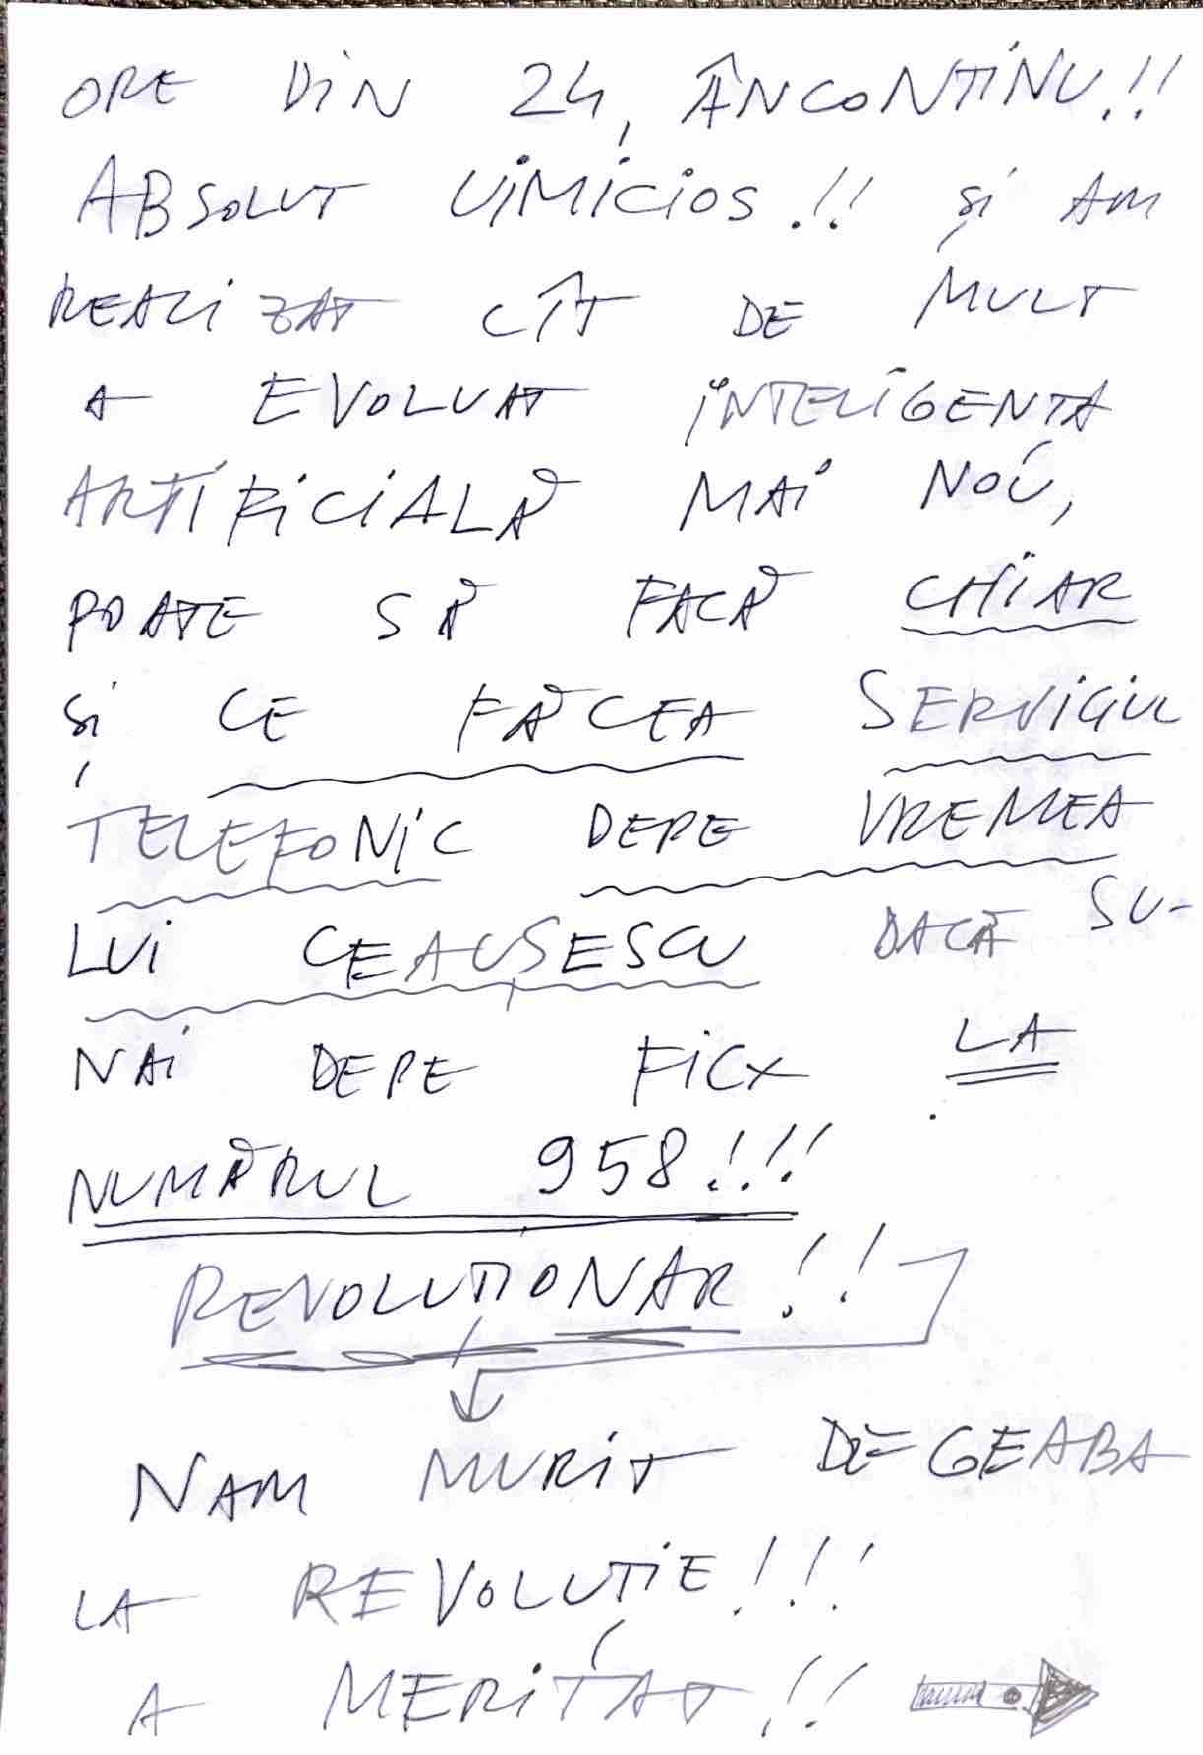 ORE DIN 24, ÂNCONTINU!!
ABSOLUT UIMICIOS!! ȘI AM
REALIZAT CÎT DE MULT
A EVOLUAT INTELIGENTA
ARTIFICIALĂ MAI NOU,
POATE SĂ FACĂ CHIAR
ȘI CE FĂCEA SERVICIUL
TELEFONIC DEPE VREMEA
LUI CEAUȘESCU DACĂ SU-
NAI DEPE FICX LA
NUMĂRUL 958!!!
REVOLUȚIONAR!!
NAM MURIT DEGEABA
LA REVOLUȚIE!!!
A MERITAT!!